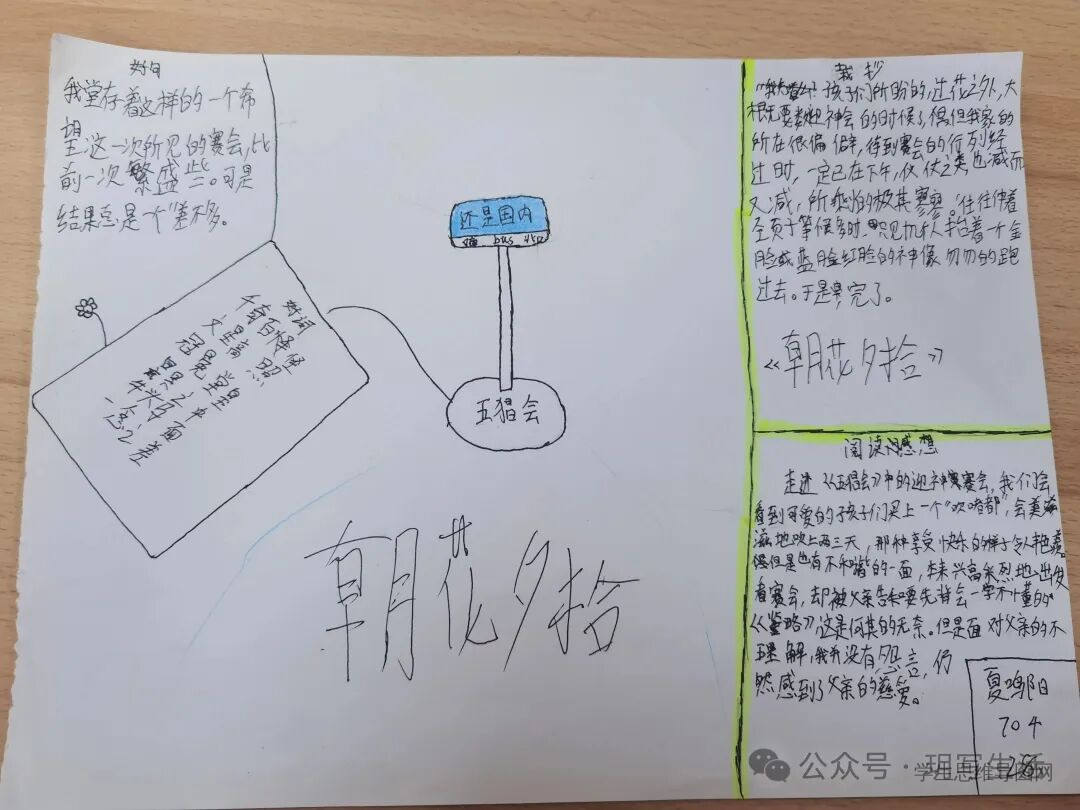 好句
我堂存着这样的一个希
望:这一次所见的赛会,比
前一次繁盛些。可是
结果总是一个"差不多。
好词
千奇百怪
文星高照
冠冕堂皇
牛头马面
一念之差
还是国内
bus
五猖会
朝花夕拾
摘抄
孩子们所盼的,过
之外,大
迎神会的时候了,但我家的
所在很偏僻,待到赛会的行列经
过时,一定已在下午,仪仗之类也减而
又减,所剩的极其寥寥。往往伸着
等候多时,只见十几人抬着一个金
脸或蓝脸红脸的神像匆匆的跑
过去。于是,完了。
《朝花夕拾》
阅读感想
走进《五猖会》中的迎神赛会,我们会
看到可爱的孩子们买上一个"吹嘟都",会美滋
滋地吹上两三天,那种享受快乐的样子令人
但是也有不和谐的一面,本来兴高采烈地出发
看赛会,却被父亲告知要先背会一字不懂的
《鉴略》,这是何其的无奈。但是面对父亲的不
理解,我并没有怨言,仍
然感到了父亲的慈爱。
704
28
公众号·玥写生活
学生思维导图网